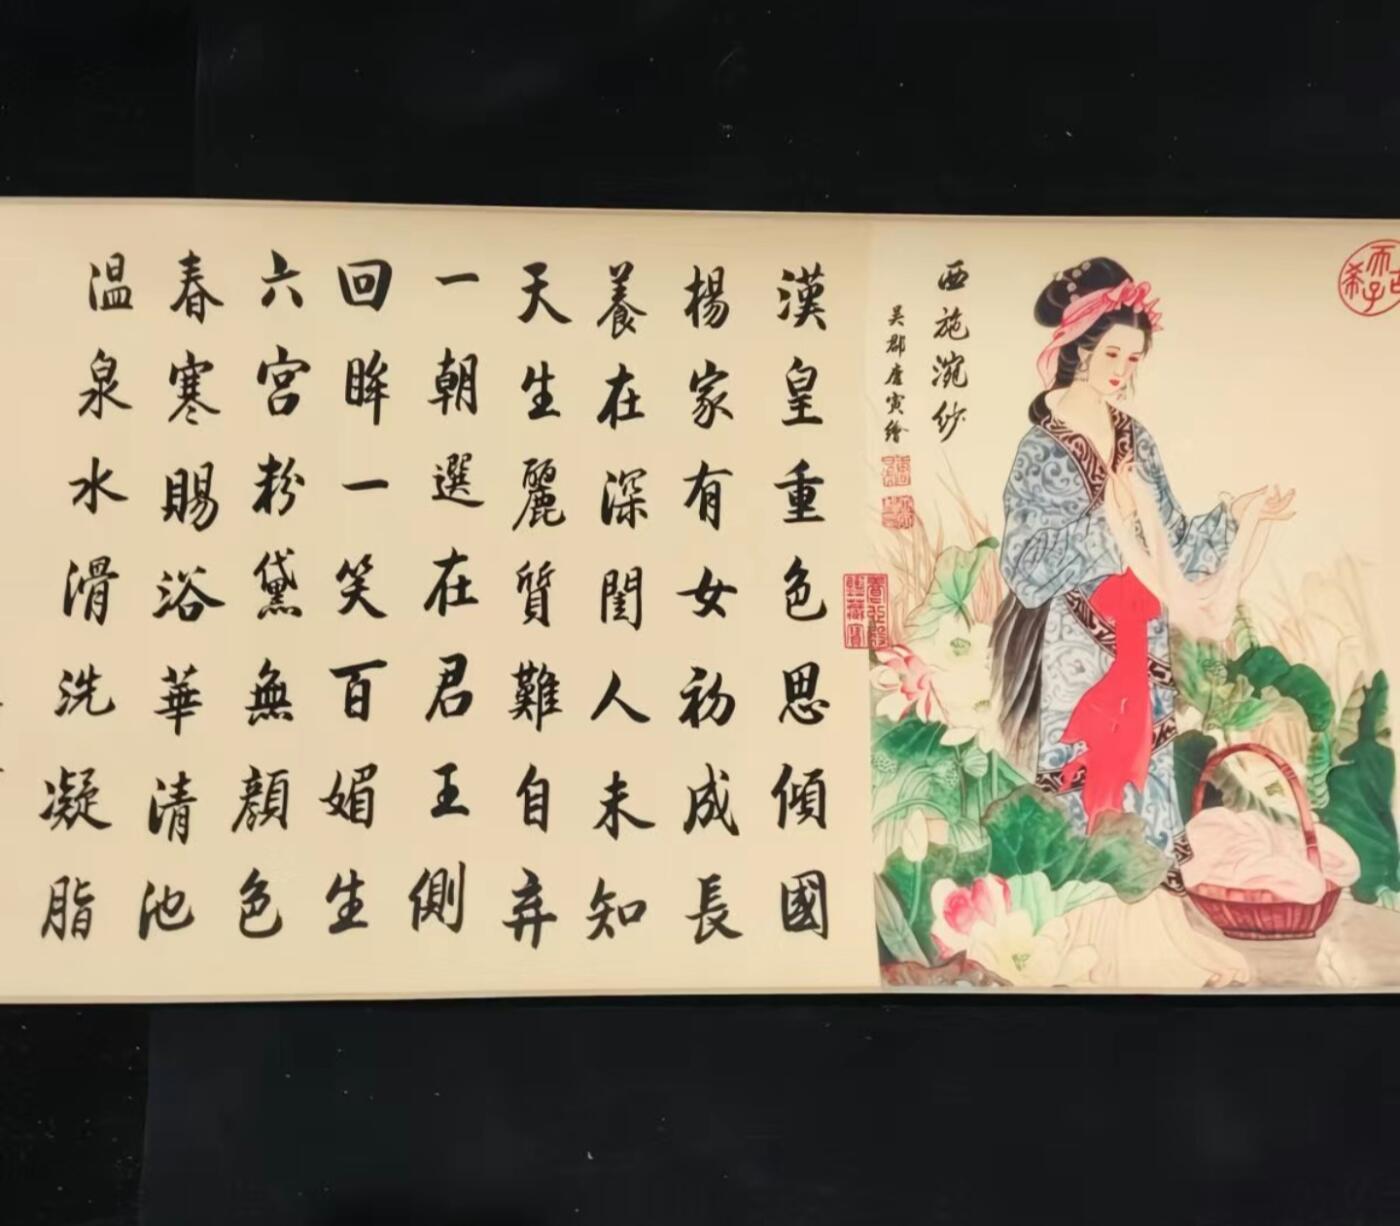 古希天子
西施浣紗
吴郡唐寅繪
漢皇重色思傾國
楊家有女初成長
養在深閨人未知
天生麗質難自弃
一朝選在君王側
回眸一笑百媚生
六宫粉黛無顔色
春寒賜浴華清池
温泉水滑洗凝脂